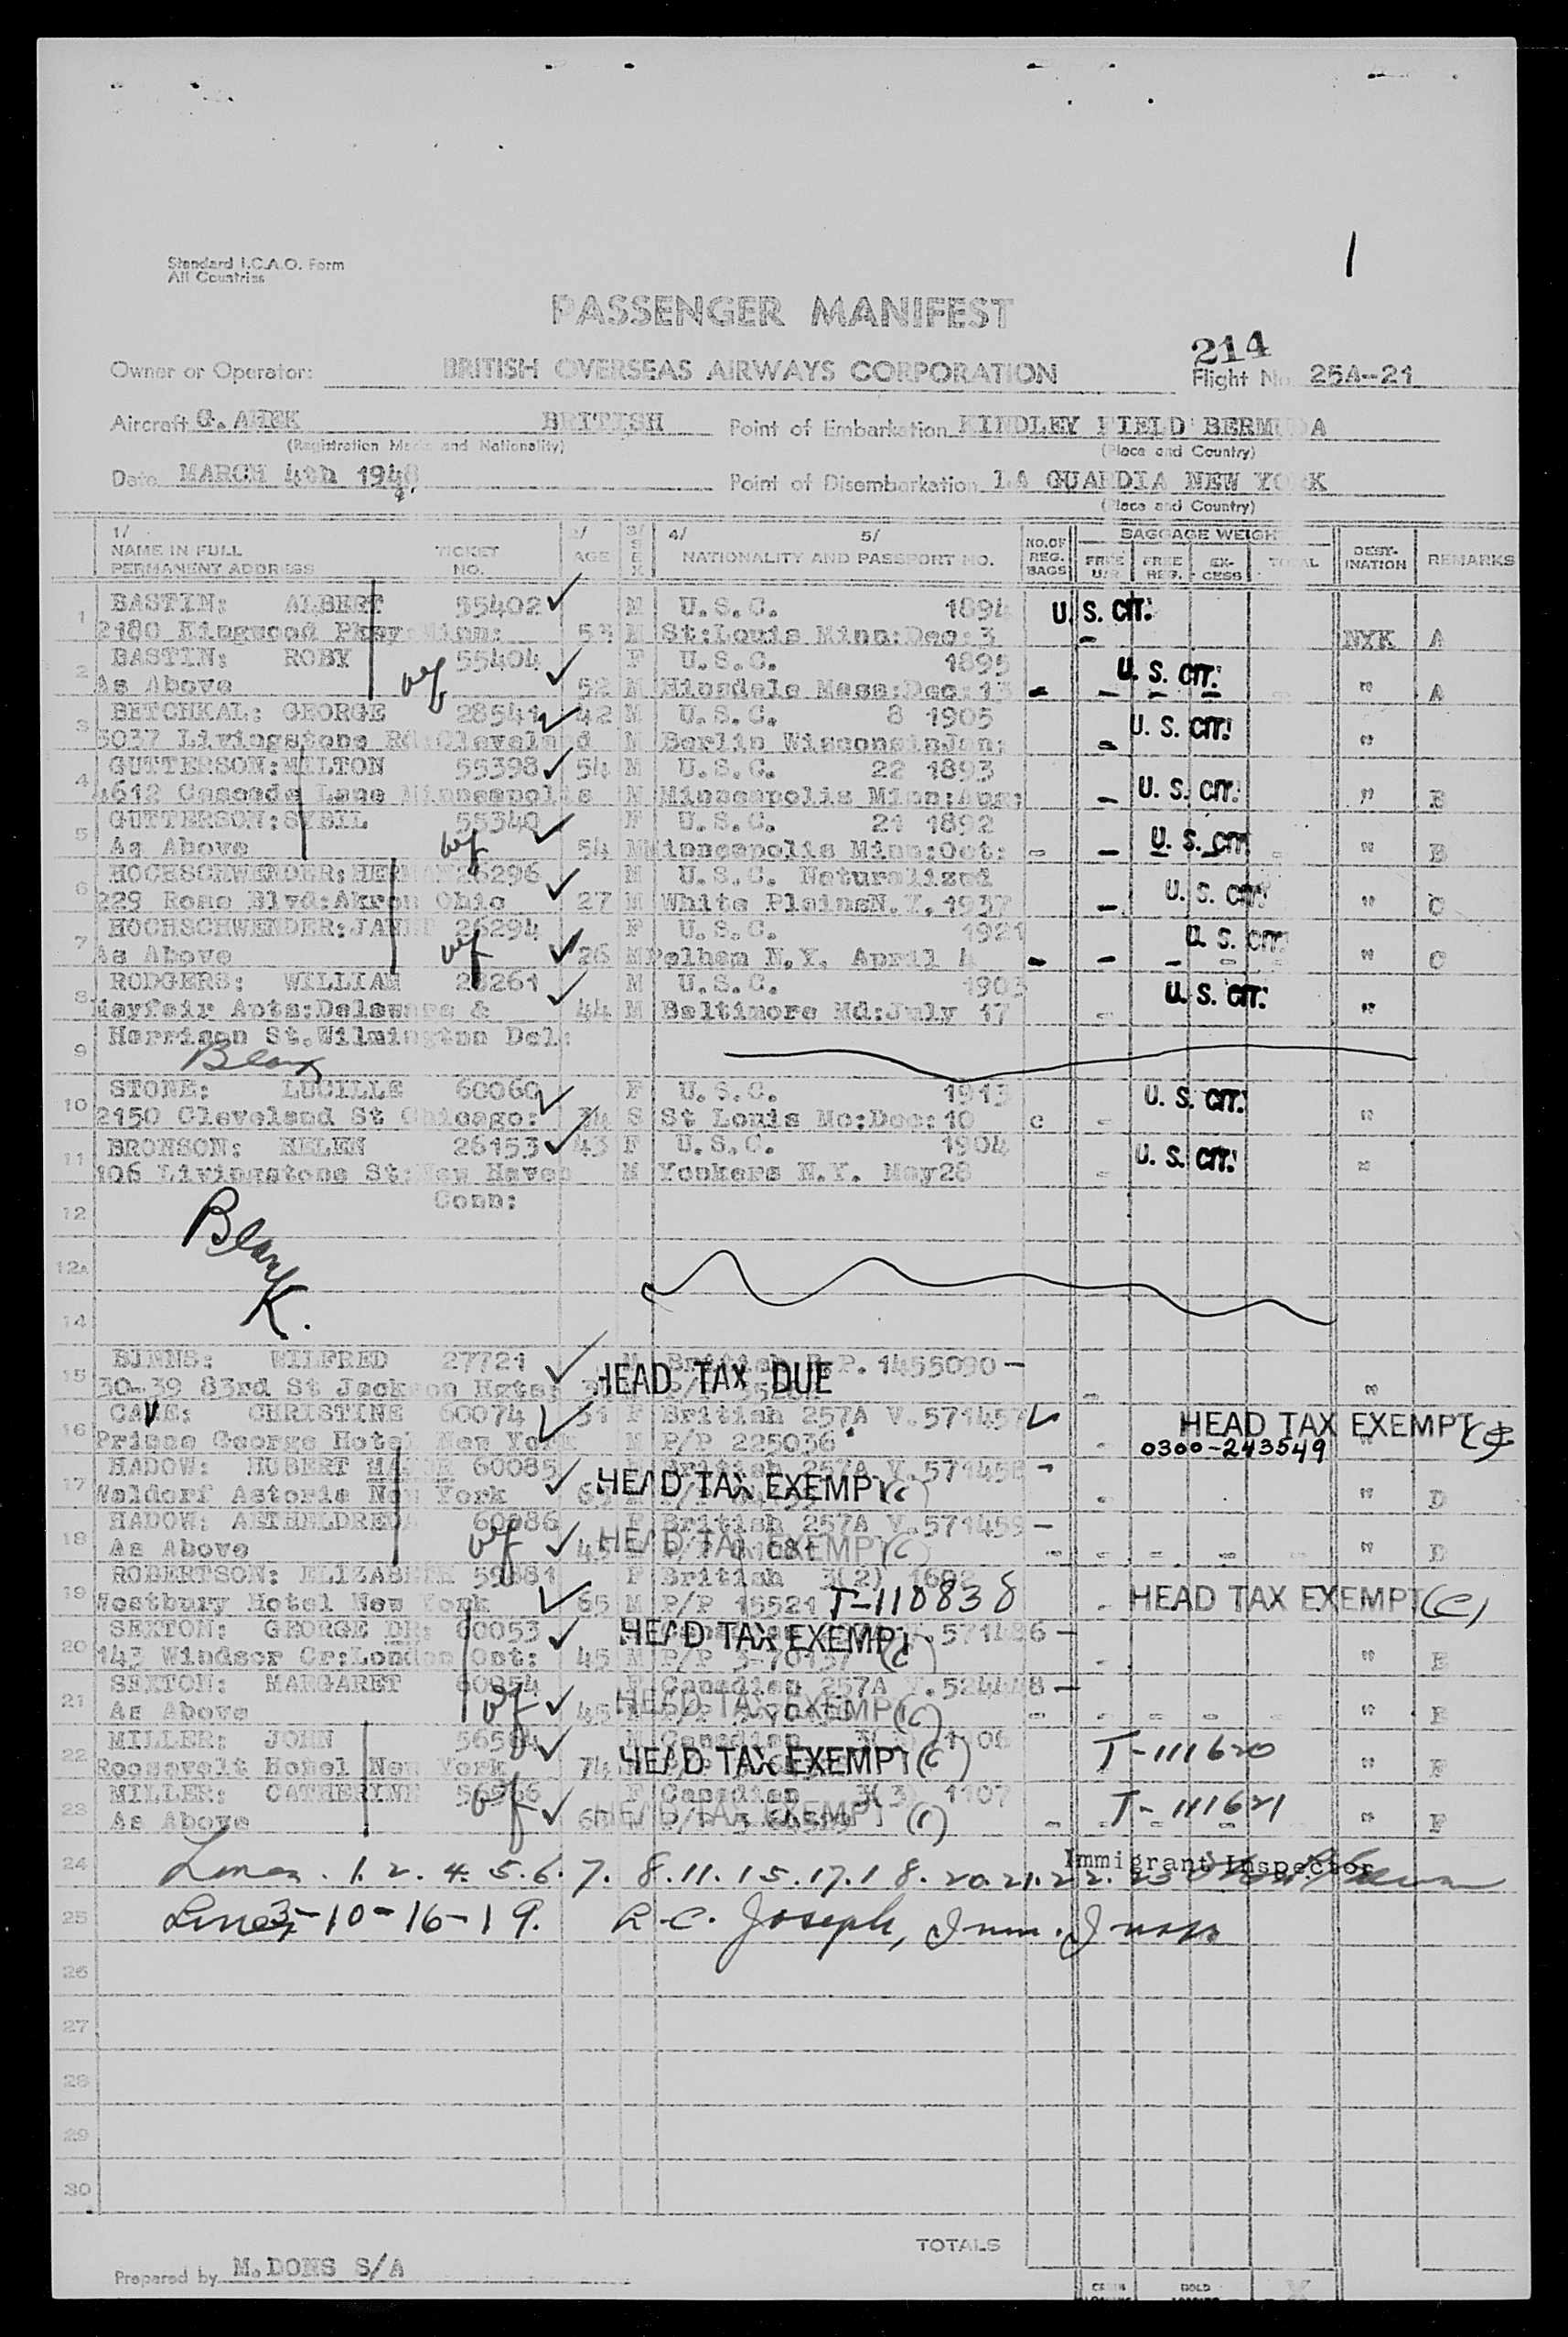 1
Standard I.C.A.O. Form
All Countries
PASSENGER MANIFEST
214
Owner or Operator: BRITISH OVERSEAS AIRWAYS CORPORATION Flight No. 25A-21
Aircraft G. AHEK BRITISH Point of Embarkation KINDLEY FIELD BERMUDA
(Registration Marks and Nationality) (Place and Country)
Date MARCH 4th 1948 Point of Disembarkation LA GUARDIA NEW YORK
(Place and Country)
1/ 2/ 3/ 4/ 5/ NO. OF REG. BAGS BAGGAGE WEIGH
NAME IN FULL TICKET AGE SEX NATIONALITY AND PASSPORT NO. FREE FREE EX- TOTAL DEST- REMARKS
PERMANENT ADDRESS NO. REG. CESS INATION
1 BASTIN: ALBERT 55402 M U.S.C. 1894 U. S. CIT.
2180 Kingwood Pkwy Minn: 53 M St:Louis Minn:Dec:3 - NYK A
2 BASTIN: ROBY 55404 F U.S.C. 1895 U. S. CIT.
As Above wf 52 M Hinsdale Mass:Dec:13 - - - - " A
3 BETCHKAL: GEORGE 28541 42 M U.S.C. 8 1905 U. S. CIT.
5037 Livingstone Rd:Cleveland M Berlin WisconsinJan: - "
4 GUTTERSON:MILTON 55398 54 M U.S.C. 22 1893
4612 Cascade Lane Minneapolis M Minneapolis Minn:Aug: - U. S. CIT. " B
5 GUTTERSON:SYBIL 55340 F U.S.C. 21 1892
As Above wf 54 M Minneapolis Minn:Oct: - - U. S. CIT. - " B
6 HOCHSCHWENDER:HERMAN 26296 M U.S.C. Naturalized
229 Rose Blvd:Akron Ohio 27 M White PlainsN.Y.1937 - U. S. CIT. " C
7 HOCHSCHWENDER:JANE 26294 F U.S.C. 1921 U. S. CIT.
As Above wf 26 M Pelham N.Y. April 4 - - - - - " C
8 RODGERS: WILLIAM 28261 M U.S.C. 1903
Mayfair Apts:Delaware & 44 M Baltimore Md:July 17 - U. S. CIT. "
9 Harrison St.Wilmington Del:
Blank
10 STONE: LUCILLE 60060 F U.S.C. 1913 U. S. CIT.
2150 Cleveland St Chicago: 34 S St Louis Mo:Dec:10 c - "
11 BRONSON: HELEN 26153 43 F U.S.C. 1904 U. S. CIT.
106 Livingstone St:New Haven M Yonkers N.Y. May28 - "
12 Conn:
Blank.
12A
14
15 BINNS: WILFRED 27721 M British P. 1455090 -
30-39 83rd St Jackson Hgts: HEAD TAX DUE - "
16 CAVE: CHRISTINE 60074 F British 257A V.571457 HEAD TAX EXEMPT (C)
Prince George Hotel New York M P/P 225036 - 0300-243549 "
17 HADOW: HUBERT 60085 British 257A V.571458 -
Waldorf Astoria New York HEAD TAX EXEMPT (C) - " D
18 HADOW: AETHELDREDA 60086 F British 257A V.571459 -
As Above wf 45 HEAD TAX EXEMPT (C) - - - - - " D
19 ROBERTSON: ELIZABETH 59881 F British 3(2) 1602
Westbury Hotel New York 65 M P/P 15521 T-110838 - HEAD TAX EXEMPT (C)
20 SEXTON: GEORGE DR: 60053 HEAD TAX EXEMPT 571486 -
143 Windsor Cr:London Ont: 45 M P/P 3-70137 (C) - " E
21 SEXTON: MARGARET 60054 F Canadian 257A V.524448 -
As Above wf 45 HEAD TAX EXEMPT (C) - - - - - " E
22 MILLER: JOHN M Canadian 1106
Roosevelt Hotel New York 74 HEAD TAX EXEMPT (C) T-111620 " F
23 MILLER: CATHERINE F Canadian 3(3) 1107
As Above wf HEAD TAX EXEMPT (C) - T-111621 " F
24 Lines. 1. 2. 4. 5. 6. 7. 8. 11. 15. 17. 18. 20. 21. 22. 23 Immigrant Inspector
25 Lines 3-10-16-19. R.C. Joseph, Imm. Insp
26
27
28
29
30
TOTALS
Prepared by M.DONS S/A